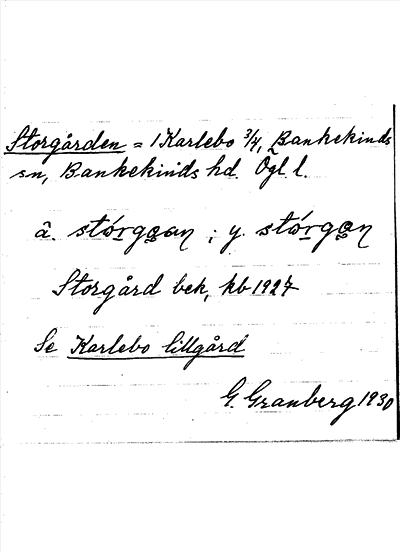 Storgården = 1 Karlebo 3/4, Bankekinds
sn, Bankekinds hd. Ögl. l.
â. stórgọan ; y. stórgọn
Storgård bek, kb 1927
Se Karlebo lillgård
G. Granberg 1930